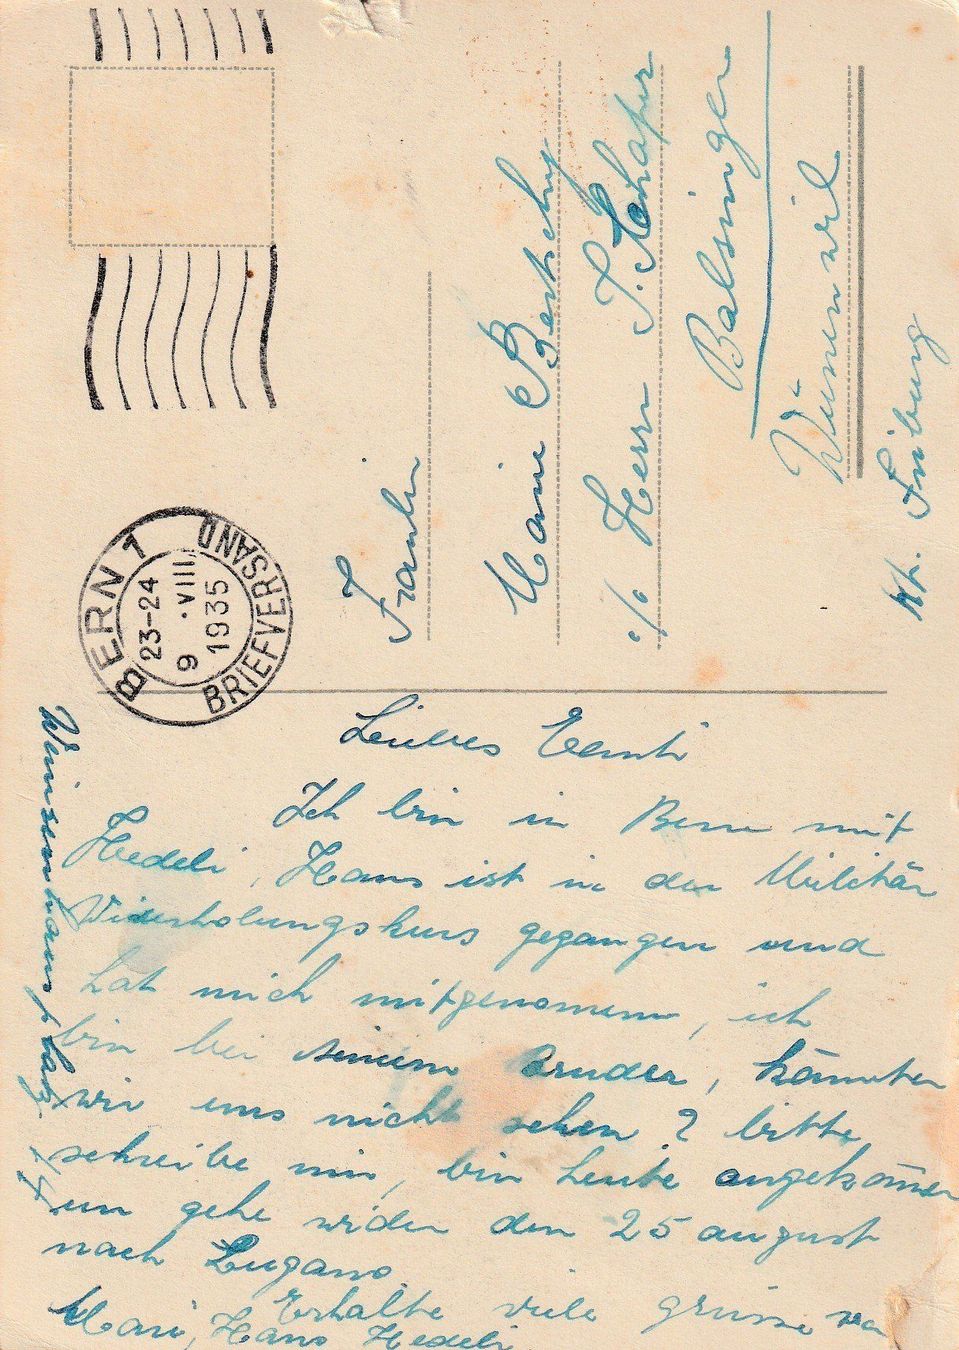 BERN 1
23-24
9 ·VIII
1935
BRIEFVERSAND
Fräulein
Marie
c/o Herrn J. Schafer
Balsingen
Wünenwil
Kt. Fribourg
Liebes
Ich bin in Bern mit
Hedeli, Hans ist in den Militär
Viderholungskurs gegangen und
hat mich mitgenommen, ich
bin bei seinem Bruder, könnten
wir uns nicht sehen? bitte
schreibe mir, bin heute angekommen
un gehe wider den 25 august
nach Lugano.
Erhalte viele grüsse von
Mari, Hans Hedeli